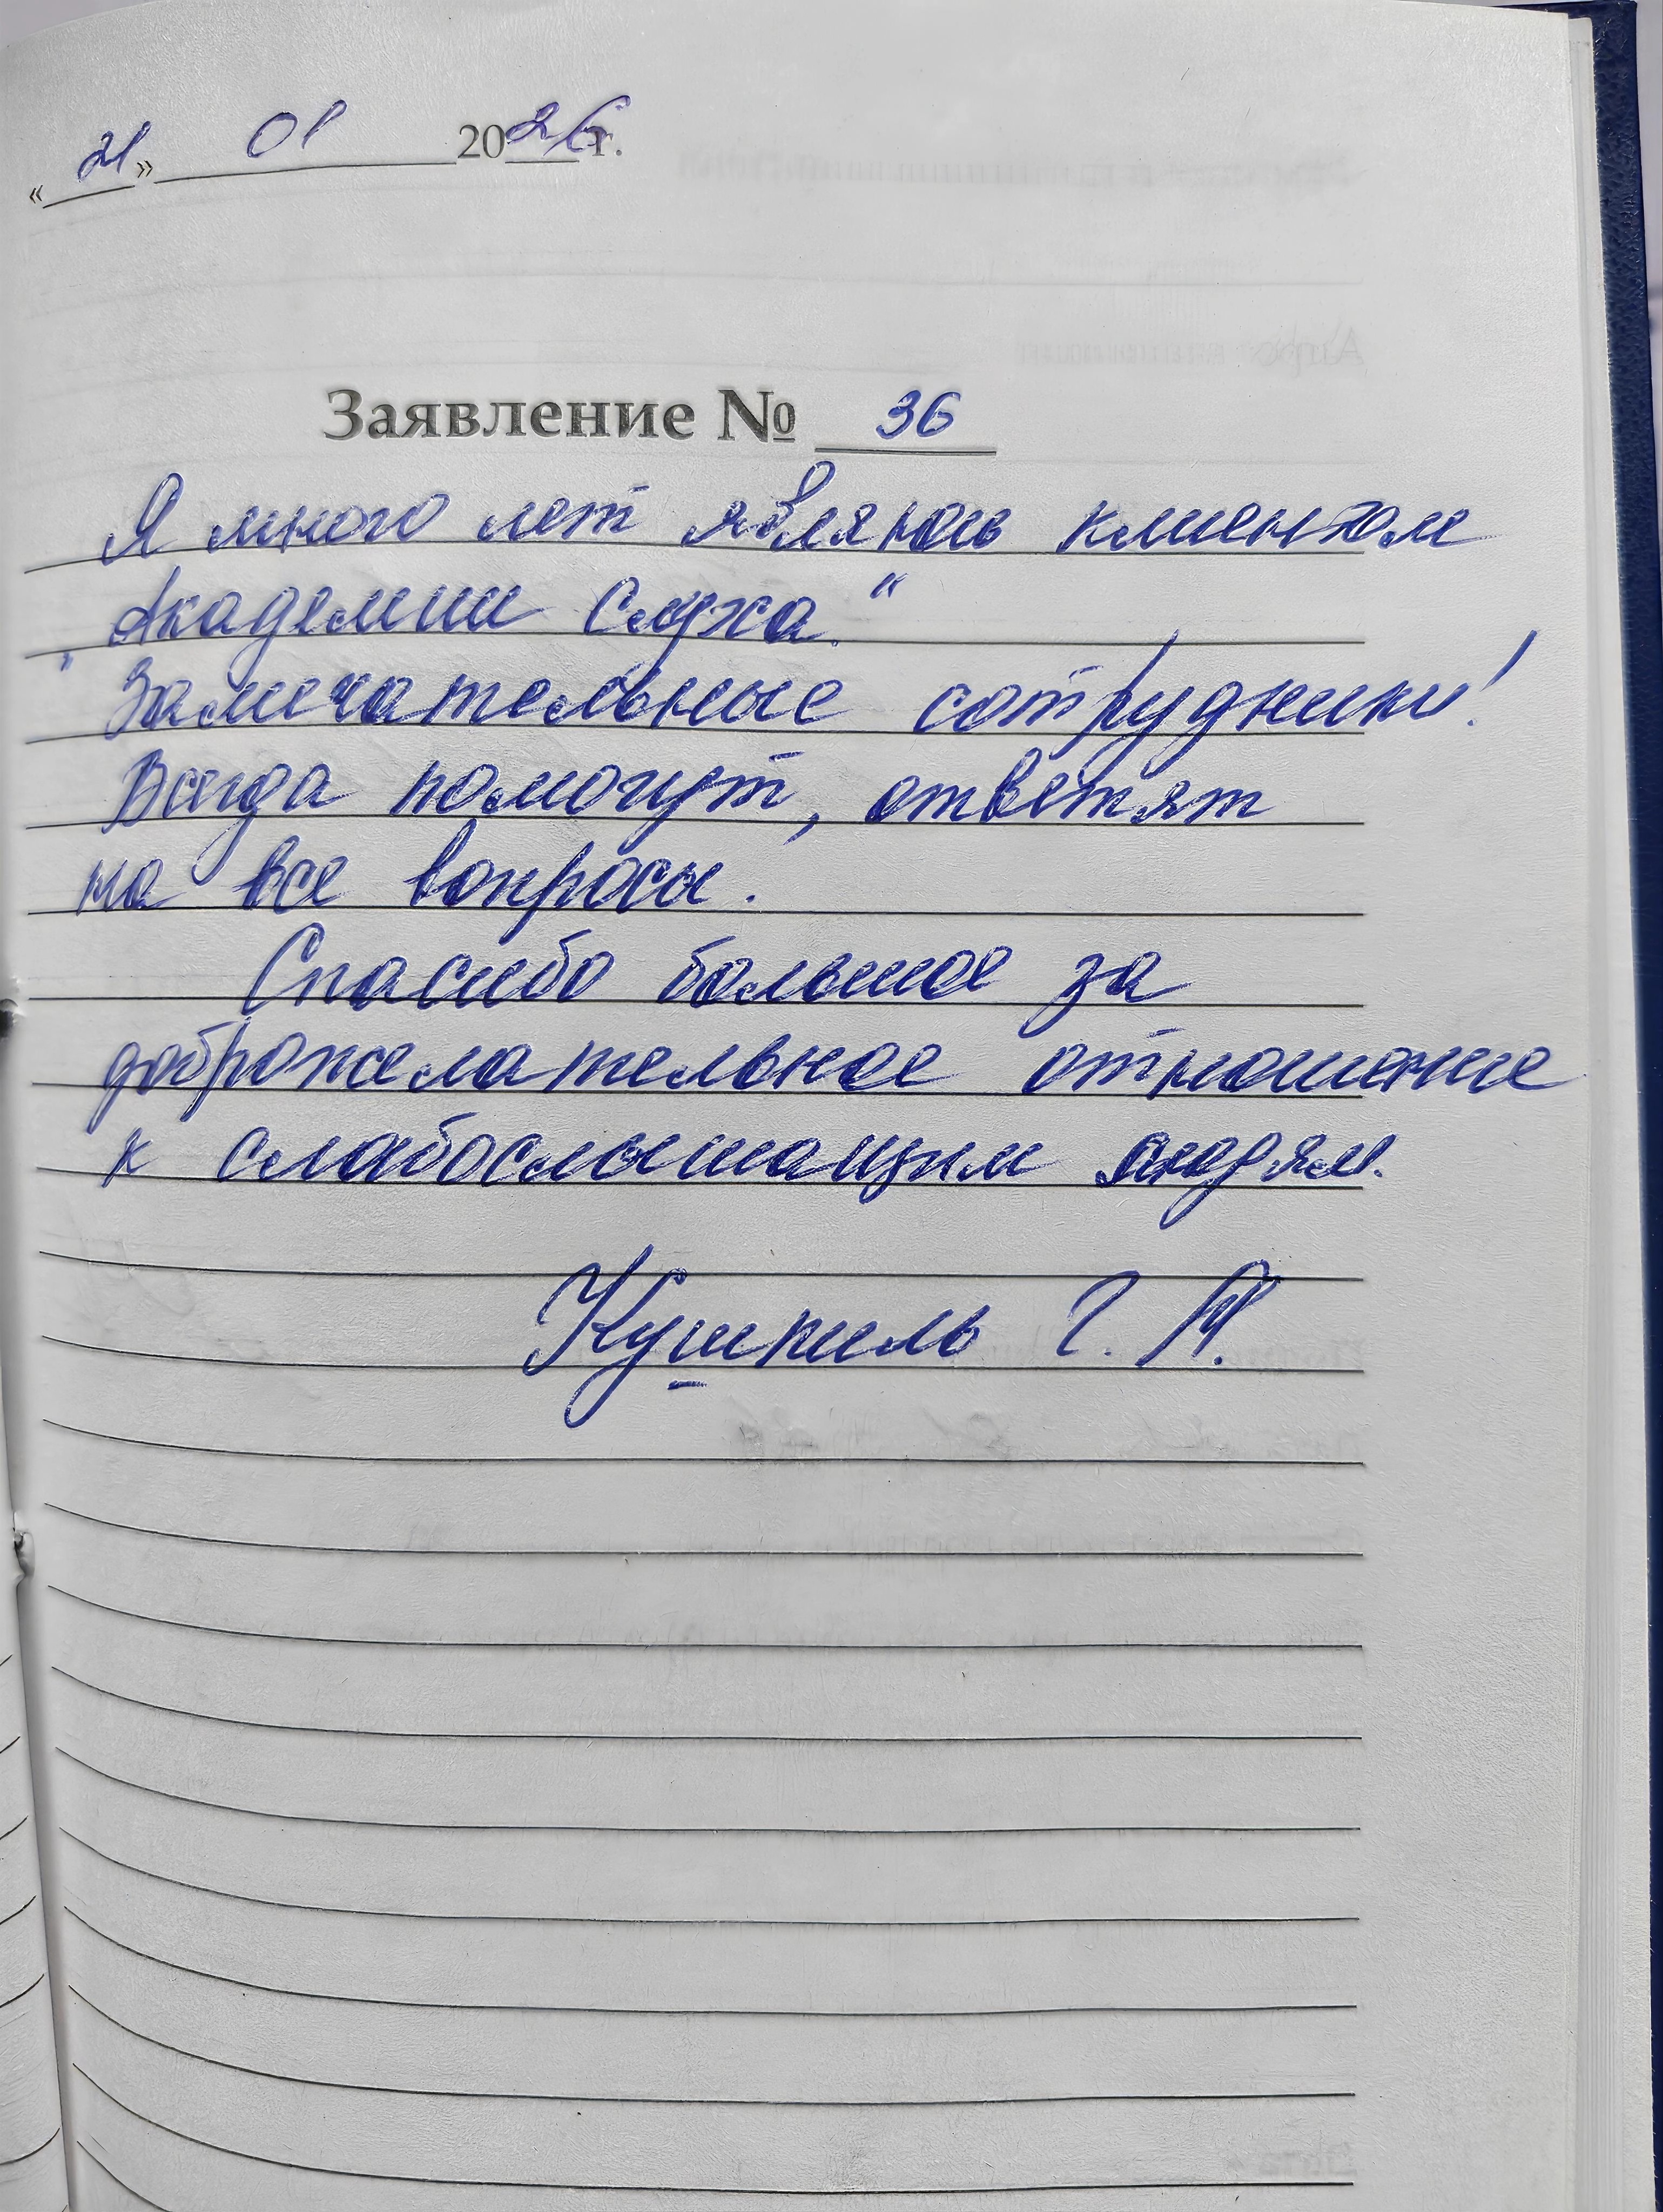 « 21 » 01 2026 г.
Заявление № 36
Я много лет являюсь клиентом
„Академии слуха."
Замечательные сотрудники!
Всегда помогут, ответят
на все вопросы.
Спасибо большое за
доброжелательное отношение
к слабослышащим людям.
Кушниль Г. А.